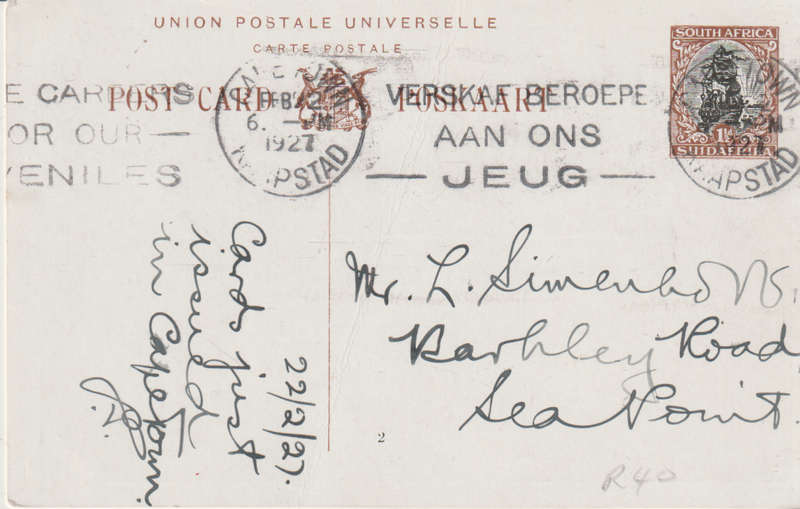 UNION POSTALE UNIVERSELLE
CARTE POSTALE
POST CARD POSKAART
SOUTH AFRICA
1½
SUIDAFRIKA
E CAREERS
OR OUR
VENILES
CAPE TOWN
FEB 22
6. PM
1927
KAAPSTAD
VERSKAF BEROEPE
AAN ONS
JEUG
TOWN
PM
KAAPSTAD
22/2/27.
Cards just
issued
in CapeTown.
Mr. L.
Road
Sea Point.
2
R40